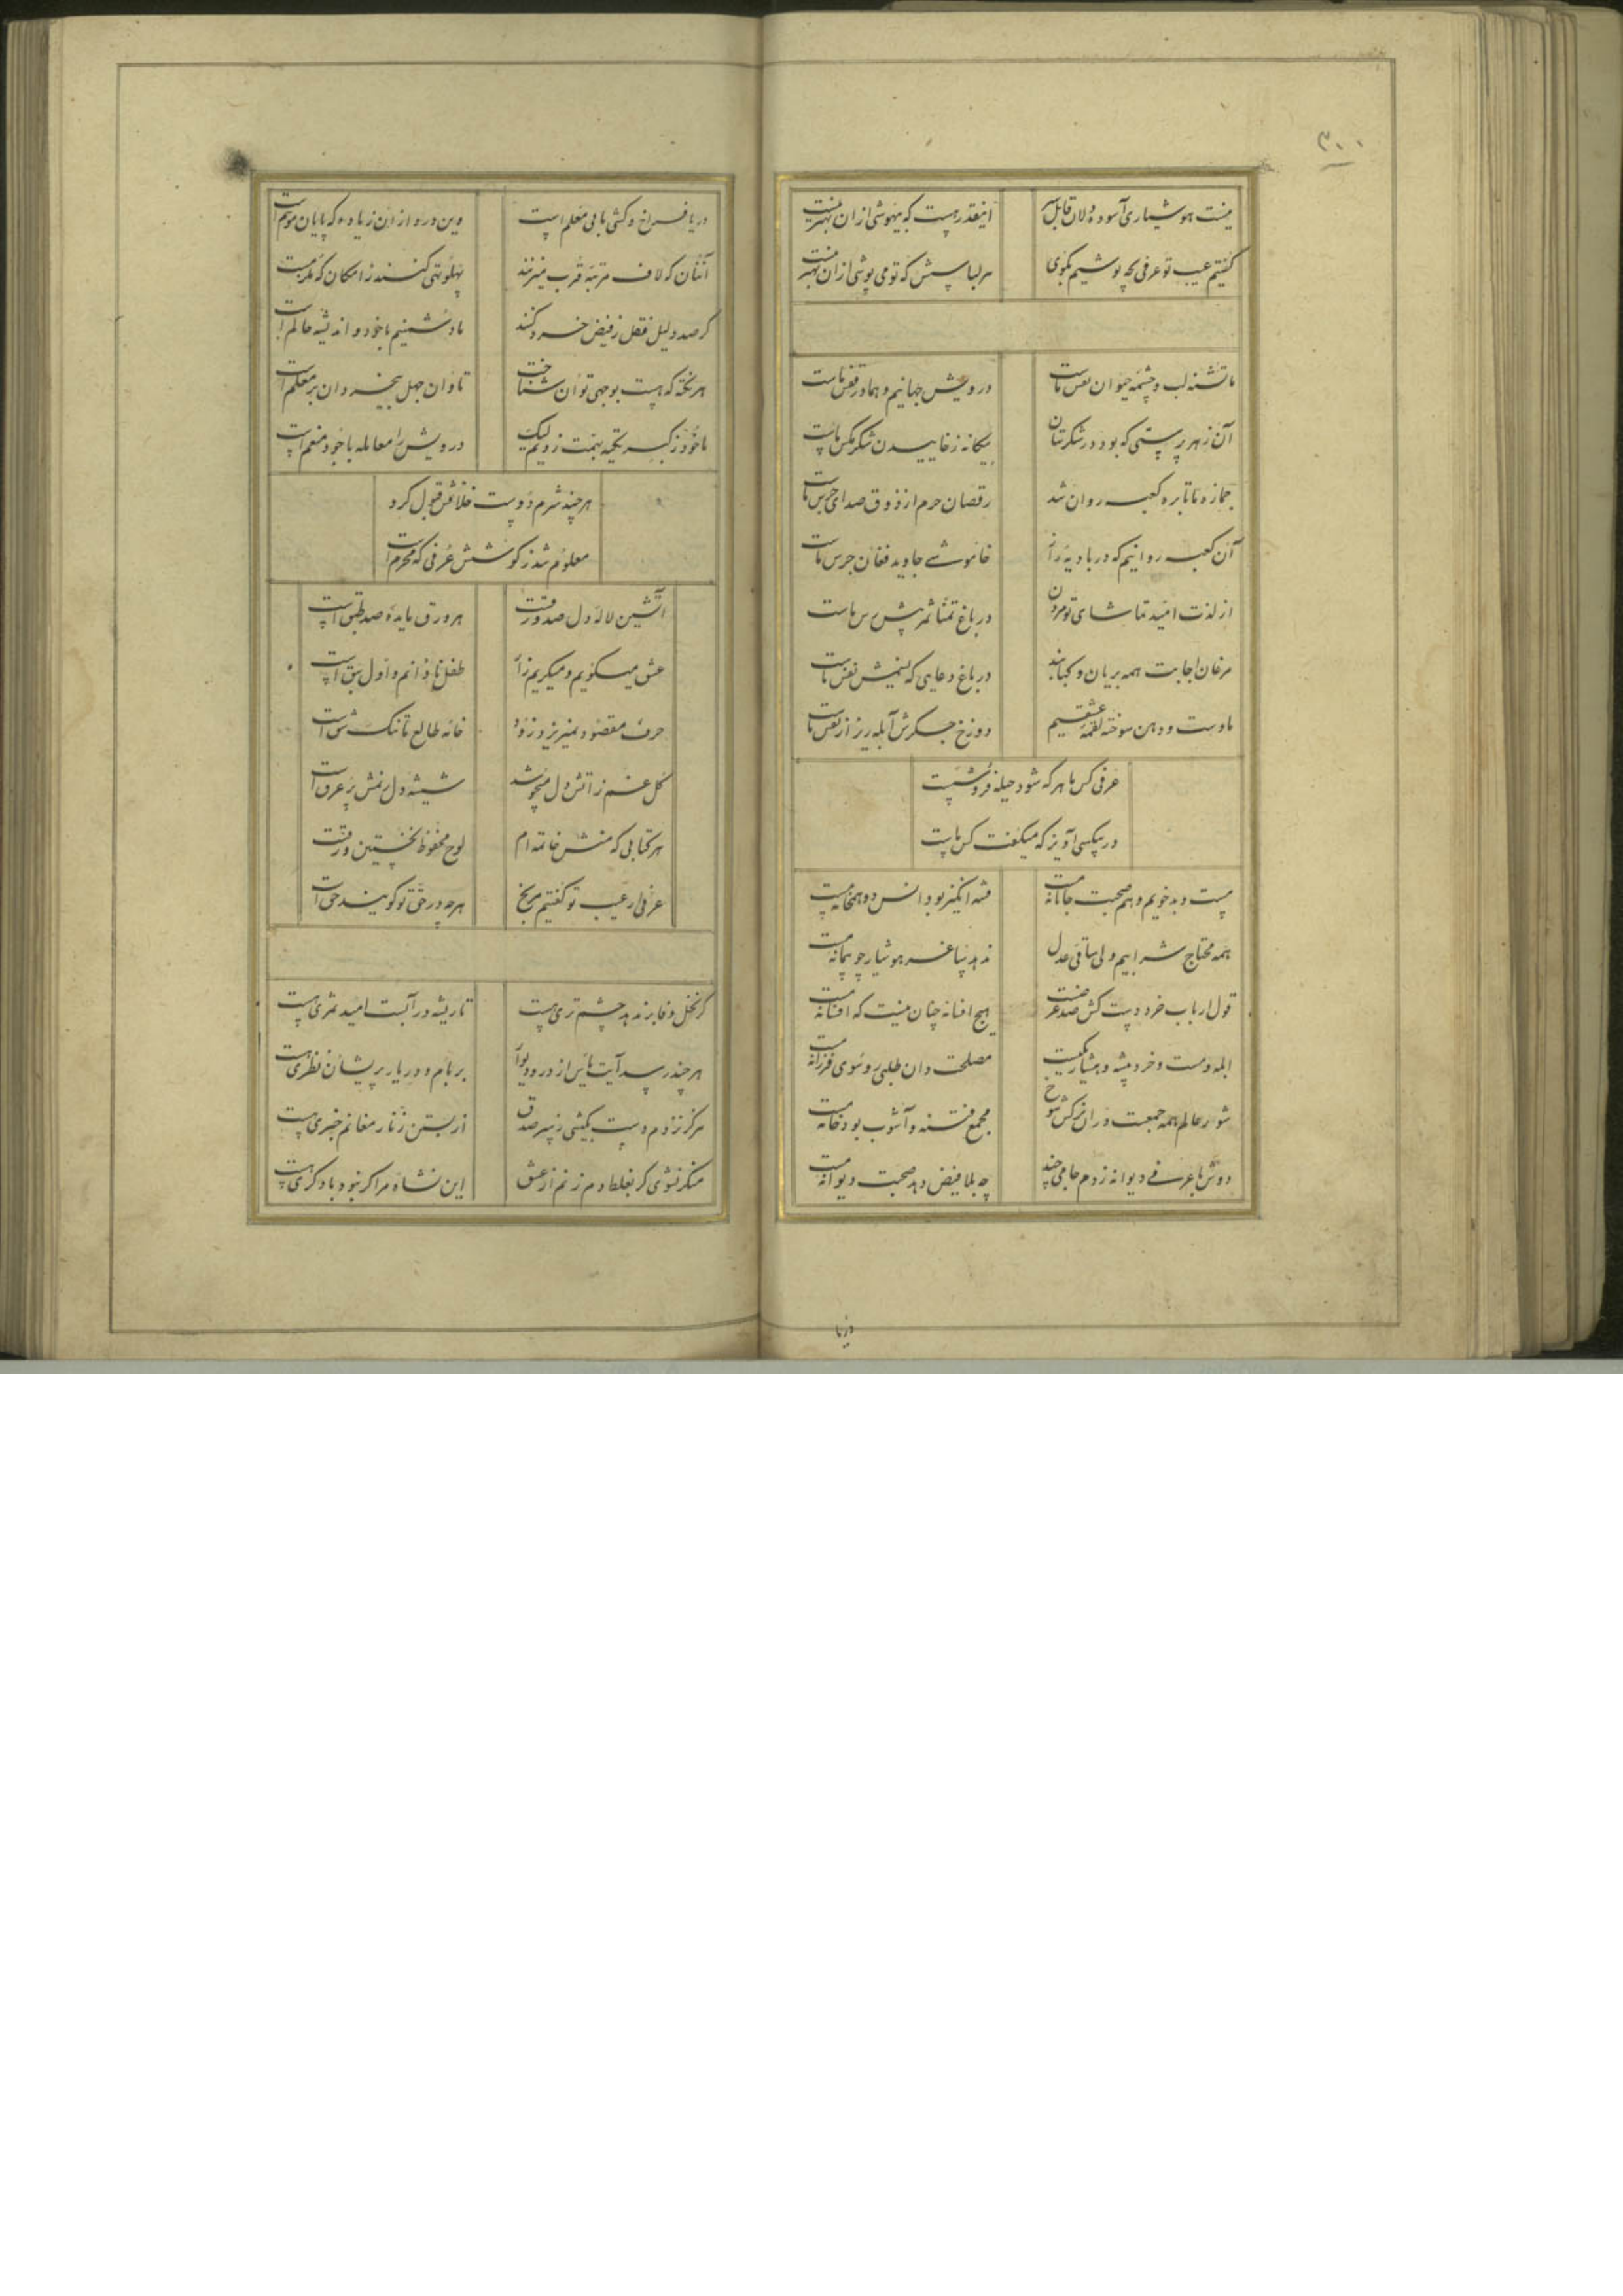 ۳۰۰
نیست هوشیاری آسوده دلان قابل
اینقدر هست که بیهوشی ازان بهتر نیست
گفتیم عیب تو عرفی بچه پوشیم بگوی
هر لباسش که تو می پوشی ازان بهتر نیست
ما تشنه لب و چشمه حیوان نفس ماست
درویش جهانیم و هما در قفس ماست
آن زهرپرستی که بود در شکرستان
بیگانه ز خاییدن شکر مگس ماست
جمازه ما تا بره کعبه روان شد
رقصان حرم از ذوق صدای جرس ماست
آن کعبه روانیم که در بادیه راز
خاموشی جاوید فغان جرس ماست
از لذت امید تماشای تو مردن
در باغ تمنا ثمر پیش رس ماست
مرغان اجابت همه بریان و کبابند
در باغ دعایی که نفس ماست
ما دست و دهن سوخته لقمه عشقیم
دوزخ جگرش آبله ریز از نفس ماست
عرفی کس ما هر که شود حیله فروشست
در بیکسی آویز که میگفت کس ماست
مست و بدخویم و هم صحبت جانانه مست
فتنه انگیز بود انس دو همخانه مست
همه محتاج شرابیم ولی ساقی عدل
ندهد ساغر هوشیار چو پیمانه مست
قول ارباب خرد کش صد غرضست
هیچ افسانه چنان نیست که افسانه مست
ابله و مست و خرد پیشه و هشیار یکیست
مصلحت دان طلبی رو سوی فرزانه مست
شور عالم همه جمعست در آن نرگس شوخ
مجمع فتنه و آشوب بود خانه مست
دوش با عرفی دیوانه زدم جامی چند
چه بلا فیض دهد صحبت دیوانه مست
دریا
دریا فراخ و کشتی ما بی معلم است
وین درد از آن زیاده که پایان
آنان که لاف مرتبه قرب میزنند
پهلو تهی کنند ز امکان که
گر صد دلیل عقل ز فیض خرد کند
ما دشمنیم با خود و اندیشه حاکم است
هر نکته که هست بوجهی توان شناخت
تاوان جهل بیخردان بر معلم است
ما خود ز کبر تکیه بهمت زدیم لیک
درویش را معامله با خود منعم است
هر چند شرم دوست خلافش قبول کرد
معلوم شد ز کوشش عرفی که مجرم است
آتشین لاله دل صد ورقست
هر ورق مایده صد طبق است
عشق میگویم و میگریم زار
طفل نادانم و اول سبق است
حرف مقصود نمیریزد زود
خانه طالع ما تنگ شق است
گل غم ز آتش دل میجوشد
شیشه دل ز نمش پر عرق است
هر کتابی که منش خاتمه ام
لوح محفوظ نخستین ورقست
عرفی ار عیب تو گفتیم مرنج
هرچه در حق تو گویند حق است
گر نخل وفا بر ندهد چشم تری هست
تا ریشه در آبست امید ثمری هست
هر چند رسد آیت یأس از در و دیوار
بر بام و در یار پریشان نظری هست
هرگز نزدم دست بکیشی ز سر صدق
از بستن زنار مغانم خبری هست
منکر نشوی گر بغلط دم زنم از عشق
این نشأه مرا گر نبود با دگری هست